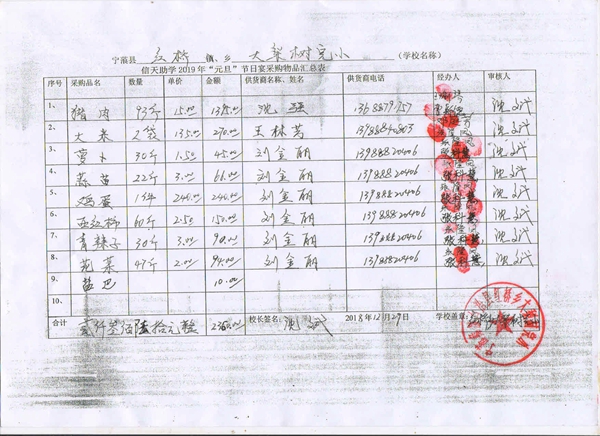 宁蒗县 红桥 镇、乡 大梨树完小 （学校名称）
信天助学2019年“元旦”节日宴采购物品汇总表
信天助学2019年“元旦”节日宴采购物品汇总表
序号 采购品名 数量 单价 金额 供货商名称、姓名 供货商电话 经办人 审核人
1、 猪肉 93斤 15.00 1395.00 沈
2、 大米 2袋 135.00 270.00 王林 13988840803
3、 萝卜 30斤 1.50 45.00 刘金丽 13988820406
4、 蒜苗 22斤 3.00 66.00 刘金丽 13988820406
5、 鸡蛋 1件 240.00 240.00 刘金丽 13988820406
6、 西红柿 60斤 2.50 150.00 刘金丽 13988820406
7、 青辣子 30斤 3.00 90.00 刘金丽 13988820406
8、 花菜 47斤 2.00 94.00 刘金丽 13988820406
9、 盐巴 10.00
10、
合计 贰仟叁佰陆拾元整 2360.00 校长签名： 沈 2018年12月29日 学校盖章：